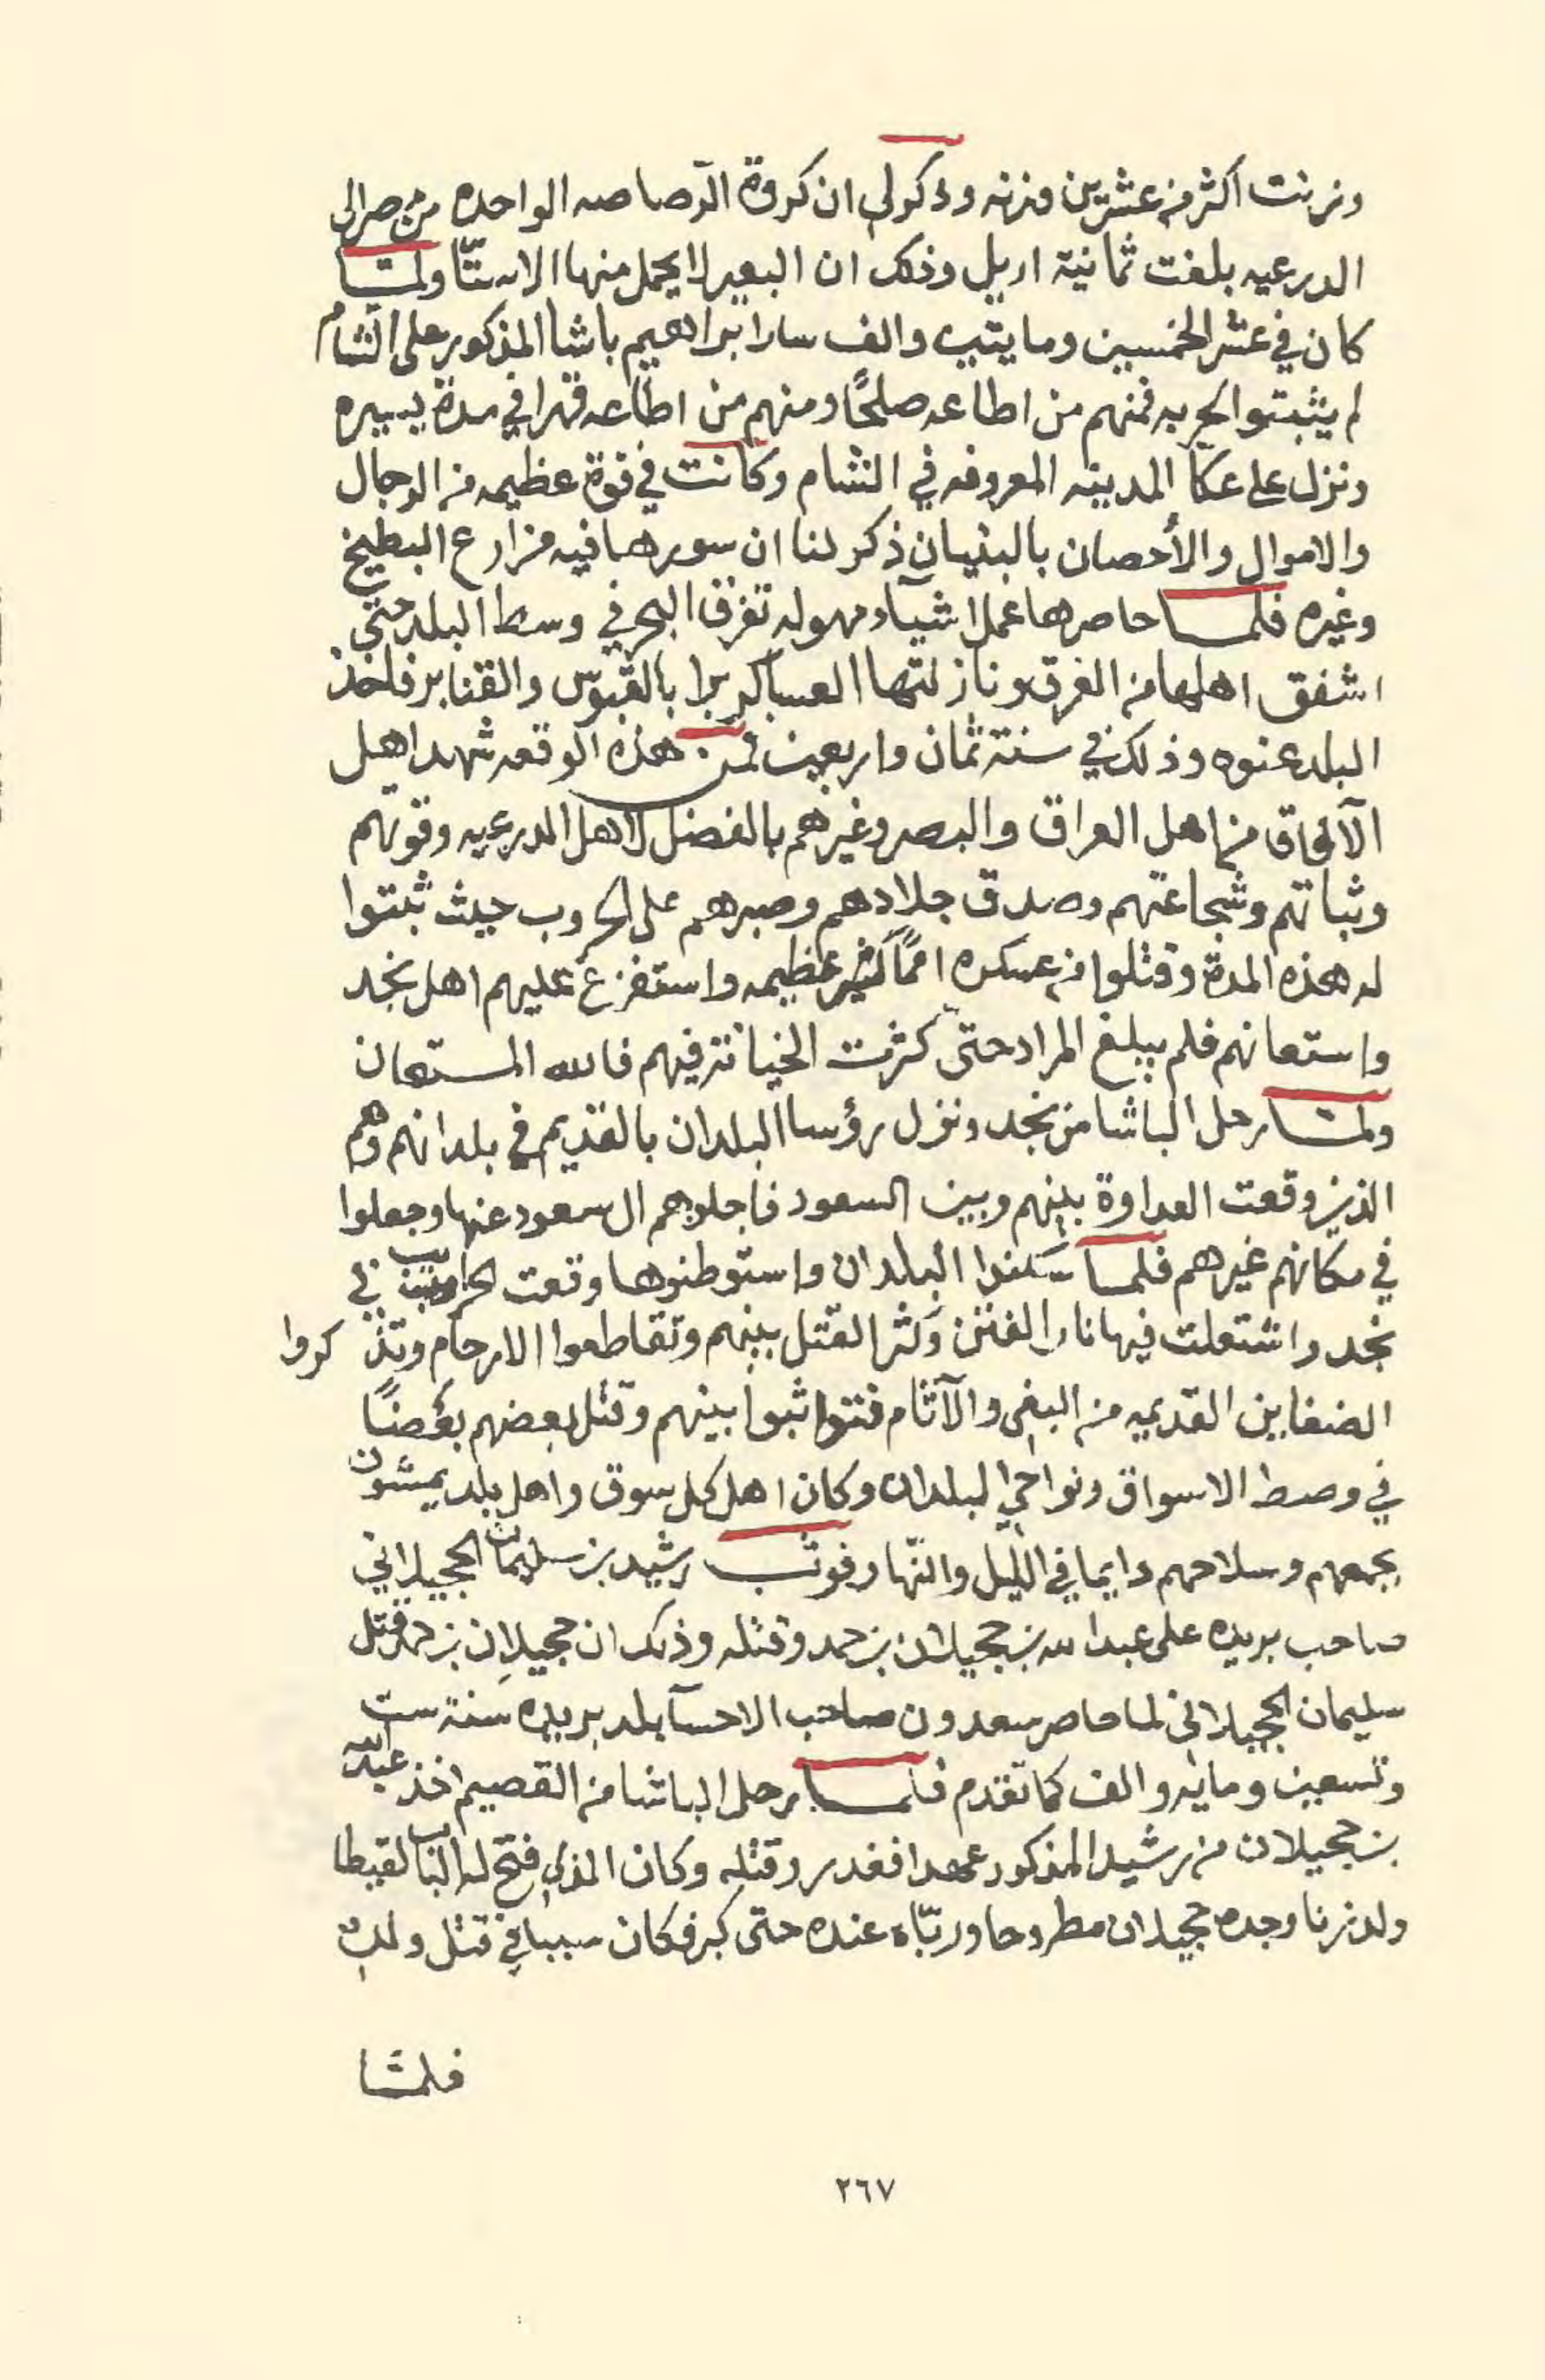 وزنت اكثر من عشرين وزنه وذكر لي ان كروة الرصاصه الواحده من مصر الى
الدرعيه بلغت ثمانية اريل وذلك ان البعير لا يحمل منها الا ستّا ولمّا
كان في عشر الخمسين ومايتين والف سار ابراهيم باشا المذكور على الشام
لم يثبتوا لحربه فمنهم من اطاعه صلحًا ومنهم من اطاعه قهرا في مدة يسيره
ونزل على عكّا المدينه المعروفه في الشام وكانت في قوة عظيمه من الرجال
والاموال والأحصان بالبنيان ذكر لنا ان سورها فيه مزارع البطيخ
وغيره فلما حاصرها عمل اشيآء مهوله تغرق البحر في وسط البلد حتى
اشفق اهلها من الغرق ونازلتها العساكر برا بالقبوس والقنابر فاخذ
البلد عنوه وذلك في سنة ثمان واربعين فمن هذه الوقعه شهد اهل
الآفاق من اهل العراق والبصر وغيرهم بالفضل لاهل الدرعيه وقوتهم
وثباتهم وشجاعتهم وصدق جلادهم وصبرهم على الحروب حيث ثبتوا
له هذه المدة وقتلوا من عسكره اممًا كثير عظيمه واستفزع عليهم اهل نجد
واستعانهم فلم يبلغ المراد حتى كثرت الخيانة فيهم فالله المستعان
ولمّا رحل الباشا من نجد ونزل رؤسا البلدان بالقديم في بلدانهم وهم
الذين وقعت العداوة بينهم وبين السعود فاجلوهم ال سعود عنها وجعلوا
في مكانهم غيرهم فلما سكنوا البلدان واستوطنوها وقعت الحرايب في
نجد واشتعلت فيها نار الفتن وكثر القتل بينهم وتقاطعوا الارحام وتذكروا
الضغاين القديمه من البغي والآثام فتواثبوا بينهم وقتل بعضهم بعضًا
في وصط الاسواق ونواحي البلدان وكان اهل كل سوق واهل بلد يمشون
بجمعهم وسلاحهم دايما في الليل والنّهار فوثب رشيد بن سليمان الحجيلاني
صاحب بريده على عبدالله بن حجيلان بن حمد وقتله وذلك ان حجيلان بن حمد قتل
سليمان الحجيلاني لما حاصر سعدون صاحب الاحسآ بلد بريده سنة ست
وتسعين ومايه والف كما تقدم فلما رحل الباشا من القصيم اخذ عبدالله
بن حجيلان من رشيد المذكور عهدا فغدر وقتله وكان الذي فتح له الباب لقيطا
ولد زنا وجده حجيلان مطروحا وربّاه عنده حتى كبر فكان سببا في قتل ولده
فلمّا
٢٦٧